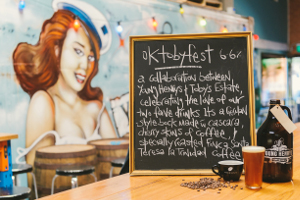 oktobyfest 6.6%
a collaboration between
Young Henrys & Tobys Estate,
celebrating the love of our
two fave drinks. Its a German
style bock made w/ cascara
cherry skins of coffee &
specially roasted Finca Santa
Teresa la Trinidad Coffee
YOUNG HENRYS